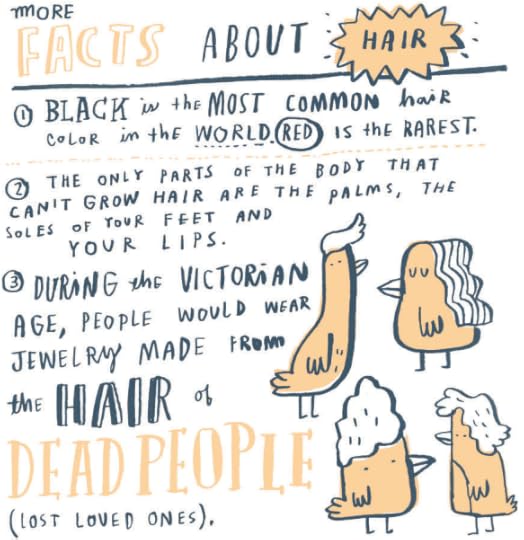 MORE
FACTS ABOUT HAIR
① BLACK is the MOST COMMON hair
COLOR in the WORLD. RED IS the RAREST.
② THE ONLY PARTS OF THE BODY THAT
CAN'T GROW HAIR ARE THE PALMS, THE
SOLES OF YOUR FEET AND
YOUR LIPS.
③ DURING the VICTORIAN
AGE, PEOPLE WOULD WEAR
JEWELRY MADE FROM
the HAIR of
DEAD PEOPLE
(LOST LOVED ONES).